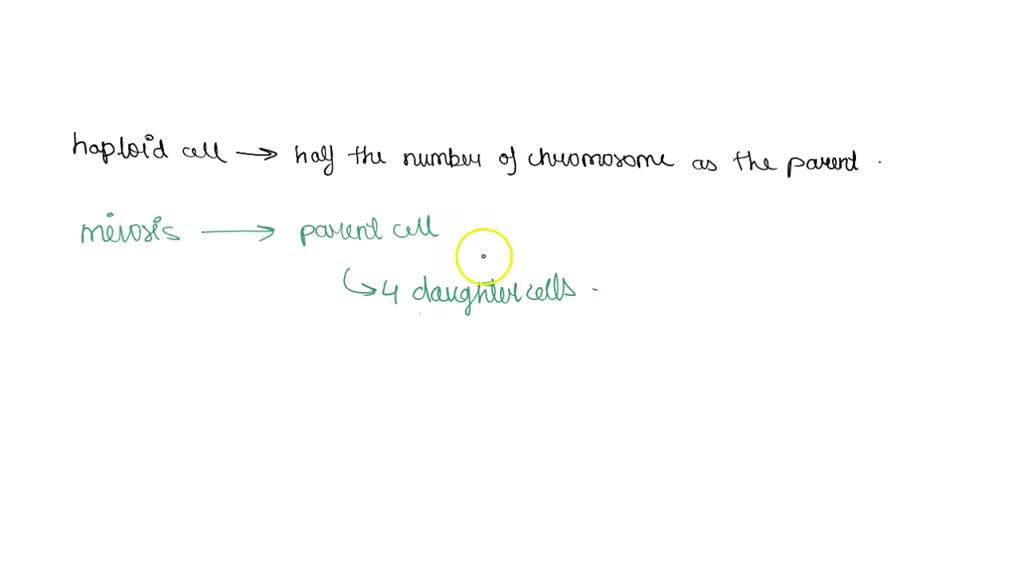 haploid cell → half the number of chromosome as the parent .
meiosis → parent cell
↳ 4 daughter cells .